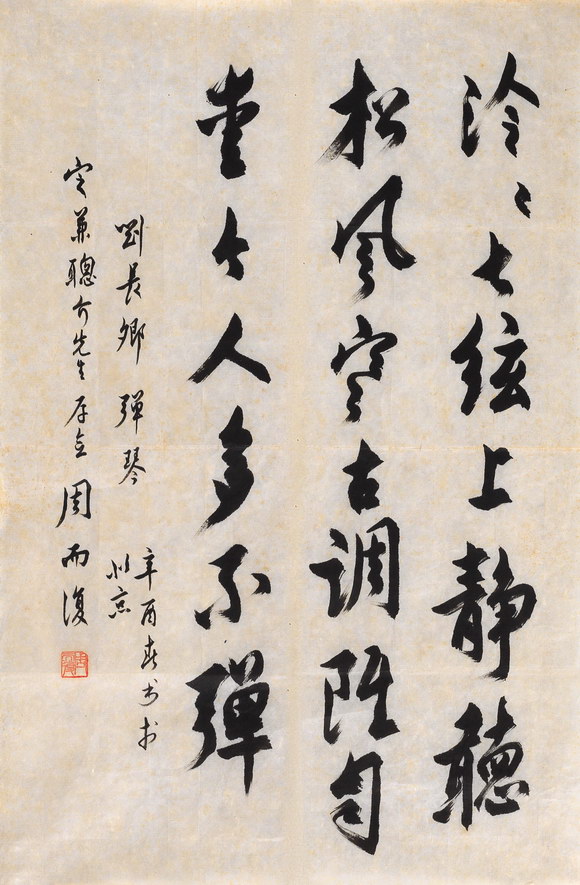 泠〻七絃上静聽
松風寒古調雖自
愛今人多不彈
劉長卿 彈琴
辛酉春书於
北京
兼聰介先生存正 周而復